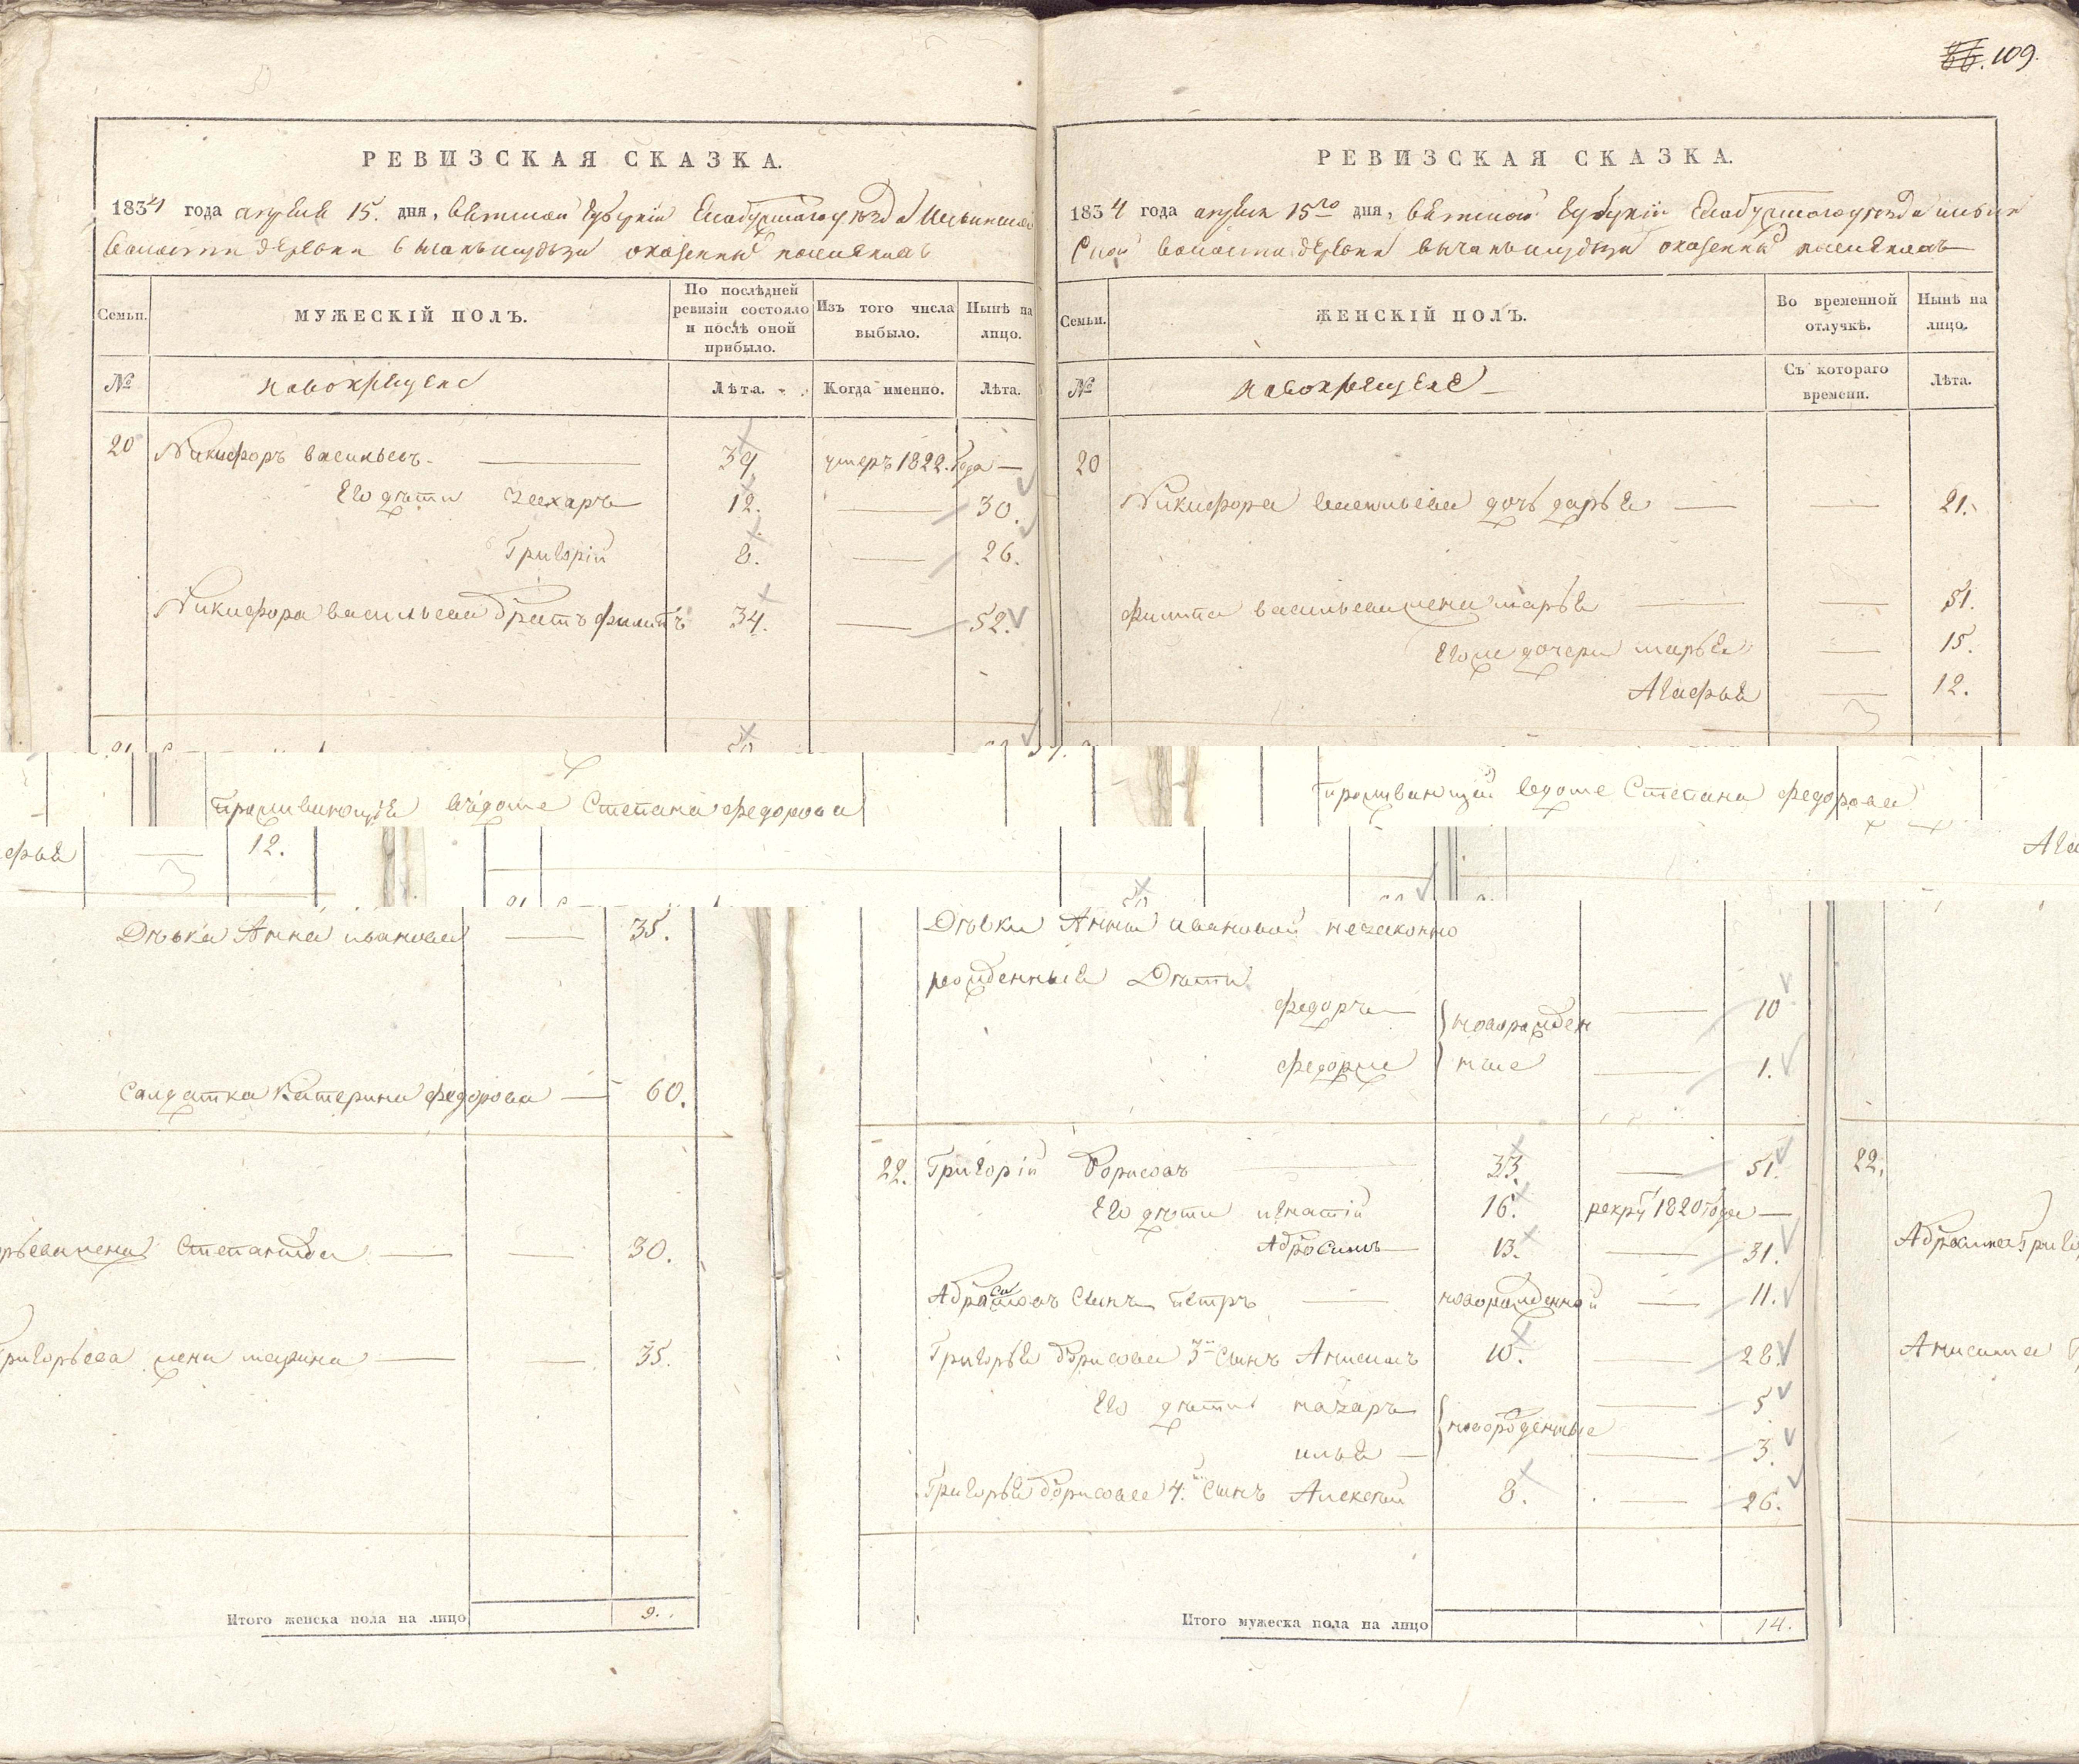 86. 109.
РЕВИЗСКАЯ СКАЗКА.
1834 года апреля 15. дня, Вятской губернии Елабужскаго уезда Ильинской
волости деревни оказенныхъ поселянахъ
Семьи.
МУЖЕСКІЙ ПОЛЪ.
По послѣдней ревизіи состояло и послѣ оной прибыло.
Изъ того числа выбыло.
Нынѣ на лицо.
№
новокрещене
Лѣта.
Когда именно.
Лѣта.
20 Никифоръ васильевъ 39 умеръ 1822. года
Его дѣти Захаръ 12. 30.
Григорій 8. 26.
Никифора васильева братъ филипъ 34. 52.
РЕВИЗСКАЯ СКАЗКА.
1834 года апреля 15го дня, Вятской губерніи Елабужскаго уезда ильин
ской волости деревни оказенныхъ поселянахъ
Семьи.
ЖЕНСКІЙ ПОЛЪ.
Во временной отлучкѣ.
Нынѣ на лицо.
№
новокрещене
Съ котораго времени.
Лѣта.
20
Никифора васильева дочь дарья 21.
филипа васильева жена марья 51.
Его же дочери марья 15.
Агафья 12.
проживающія вдоме Степана федорова
проживающій вдоме Степана федорова
фья 12.
Ага
Дѣвка Анна иванова 35.
Салдатка Катерина федорова 60.
рьева жена Степанида 30.
Григорьева жена марина 35.
Итого женска пола на лицо 9.
Дѣвки Анны ивановой незаконно
рожденныя Дѣти
федоръ новорожден 10
федоръ же ные 1.
22. Григорій Борисовъ 33. 51.
Его дѣти игнатій 16. рекрут 1820 года
Абросимъ 13. 31.
Абросимовъ сынъ петръ новорожденной 11.
Григорья борисова 3й сынъ Анисимъ 10. 28.
Его дѣти назаръ новорожденные 5
илья 3.
Григорья борисова 4й сынъ Алексей 8. 26.
Итого мужеска пола на лицо 14.
22.
Абросима Григо
Анисима